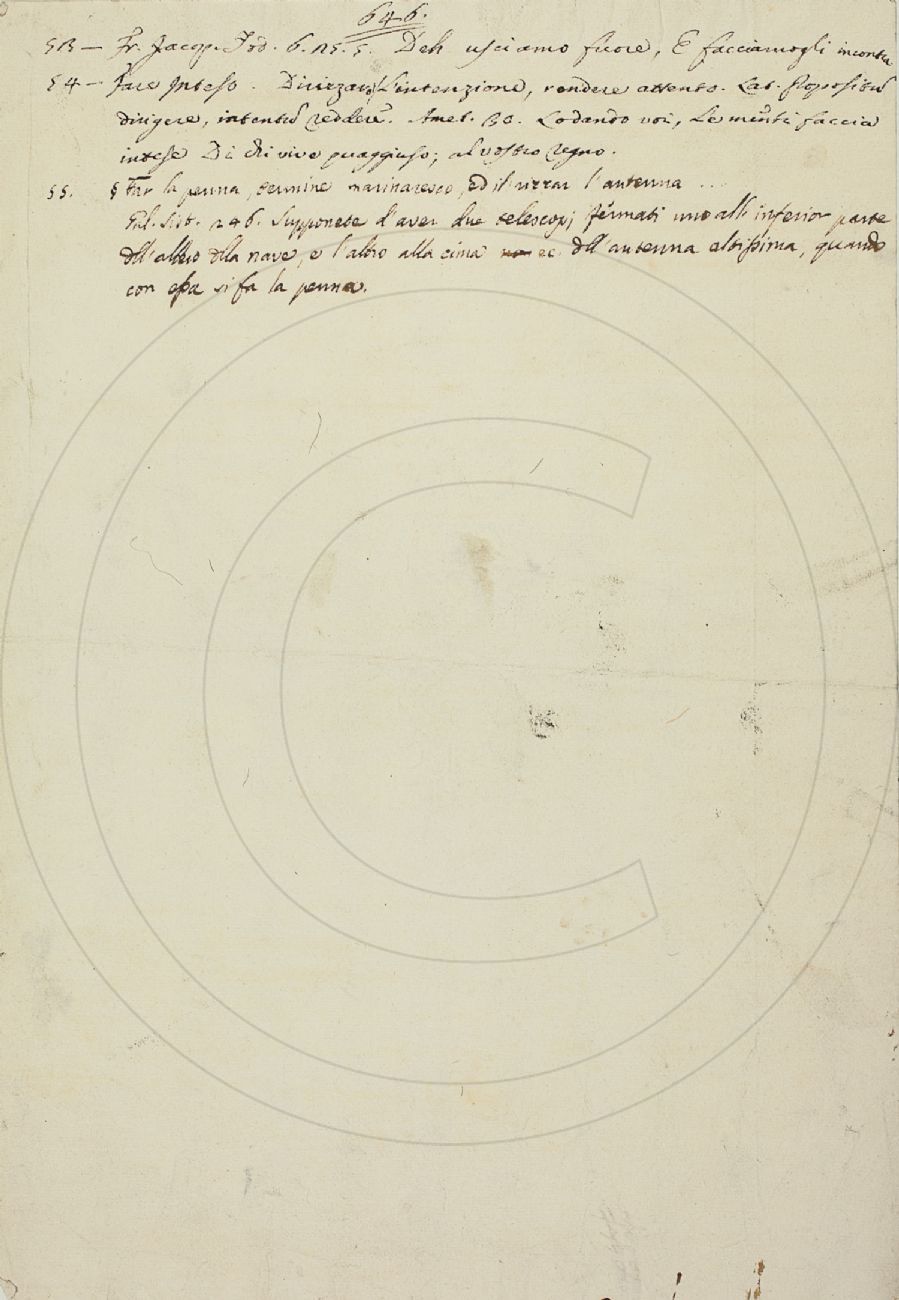 646.
53 — Fr. Jacop. Tod. 6. 25. 5. Deh usciamo fuore, E facciamogli incontra
54 — Fare Inteso. Dirizzare L'intenzione, rendere attento. Lat. Propositũ
dirigere, intentũ reddere. Amet. 30. Lodando voi, Le menti faccia
intese Di chi vive quaggiuso, al vostro regno.
55. § Far la penna, termine marinaresco, ed il rizzar l'antenna ...
Gal. Sist. 246. Supponete d'aver due telescopj fermati uno all' inferior parte
dll'albero dlla nave, e l'altro alla cima ec. dll' antenna altissima, quando
con essa si fa la penna.